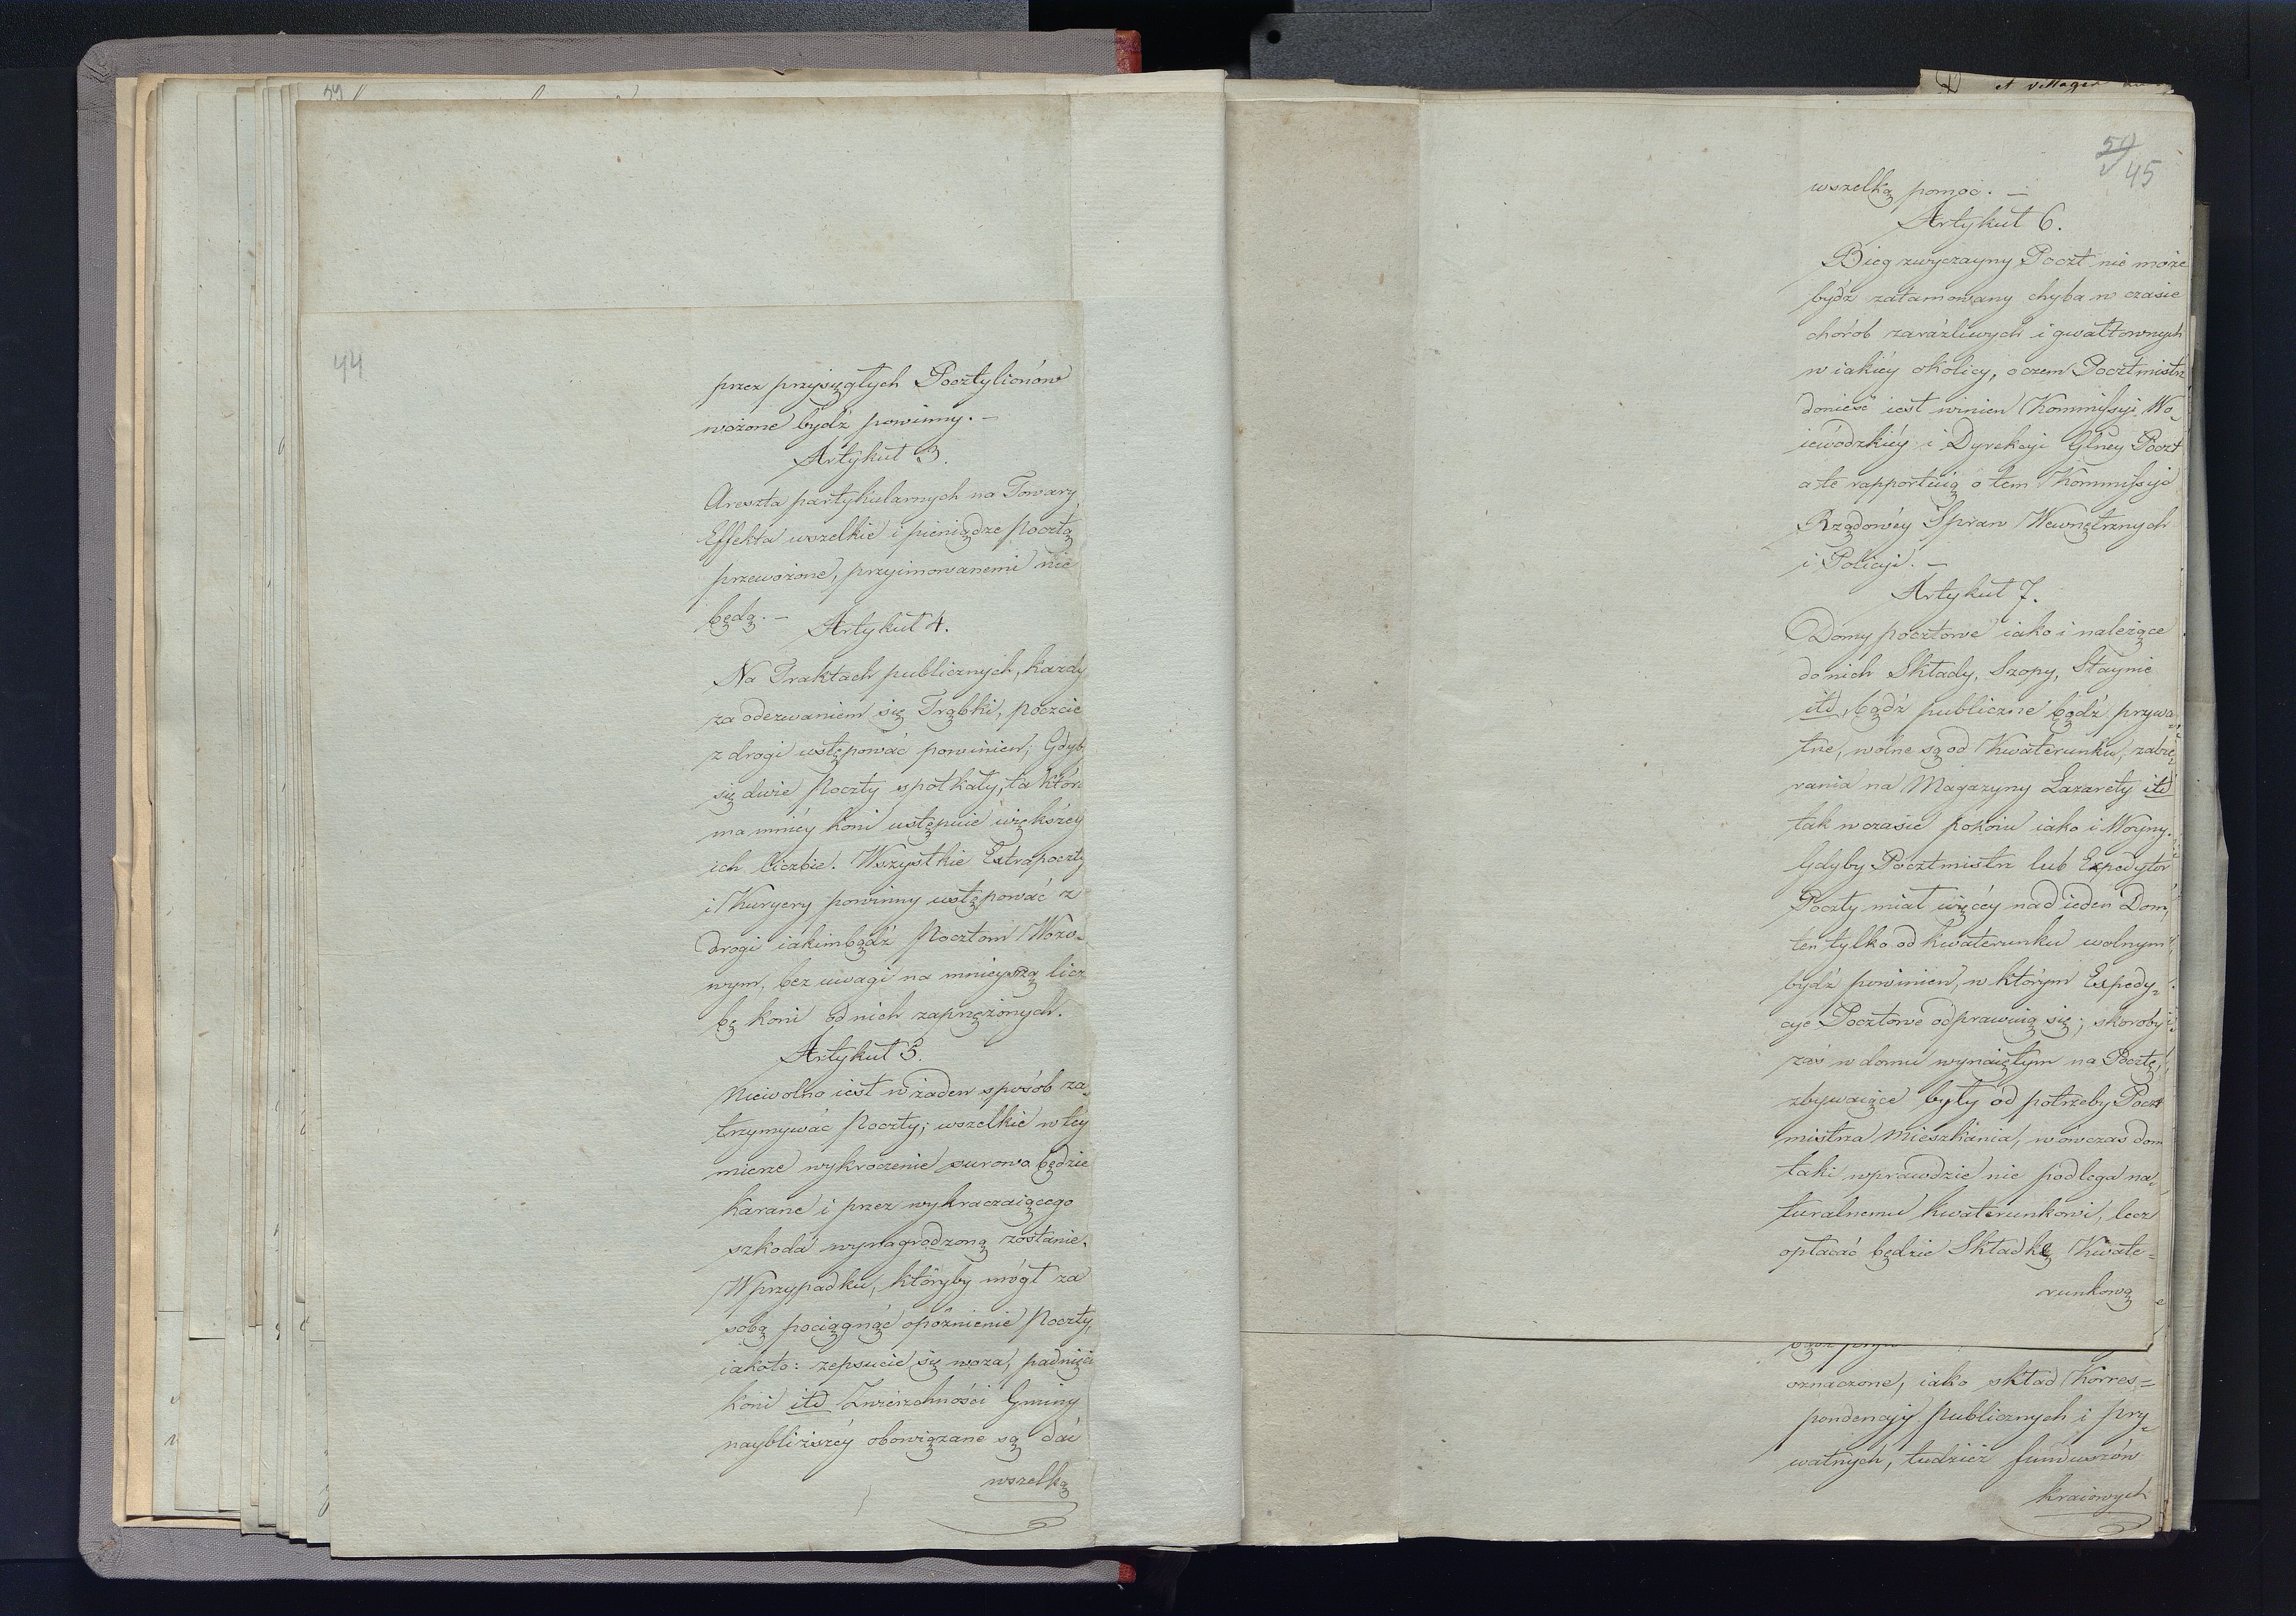 44
przez przysięgłych Pocztylionów
wożone bydź powinny. –
Artykuł 3.
Areszta partykularnych na Towary,
Effekta wszelkie i pieniądze pocztą
przewożone, przyimowanemi nie
będą. –
Artykuł 4.
Na Traktach publicznych, każdy
za odezwaniem się Trąbki, poczcie
z drogi ustępować powinien; Gdyby
się dwie Poczty spotkały, ta która
ma mniéy koni ustępuie większéy
ich liczbie. Wszystkie Extrapoczty
i Kuryery powinny ustępować z
drogi iakimbądź Pocztom Wozo-
wym, bez uwagi na mnieyszą licz
bę koni od nich zaprzężonych.
Artykuł 5.
Niewolno iest w żaden sposób za-
trzymywać Poczty; wszelkie w tey
mierze wykroczenie surowo będzie
karane i przez wykraczaiącego
szkoda wynagrodzoną zostanie.
W przypadku, któryby mógł za
sobą pociągnąć opóźnienie Poczty,
iakoto: zepsucie się woza, padnięcie
koni itd Zwierzchności Gminy
naybliższéy obowiązane są dać
wszelką
59
45
wszelką pomoc. –
Artykuł 6.
Bieg zwyczayny Poczt nie może
bydź zatamowany chyba w czasie
chorób zaraźliwych i gwałtownych
w iakiéy okolicy, o czem Pocztmistrz
donieść iest winien Kommissyi Wo-
iewódzkiéy i Dyrekcyi Głney Poczt
a te rapportuią o tem Kommissyi
Rządowéy Spraw Wewnętrznych
i Policyi. –
Artykuł 7.
Domy pocztowe iako i należące
do nich Składy, Szopy, Staynie
itd, bądź publiczne bądź prywa-
tne, wolne są od Kwaterunku, zabie-
rania na Magazyny Lazarety itd
tak w czasie pokoiu iako i Woyny.
Gdyby Pocztmistrz lub Expedytor
Poczty miał więcéy nad ieden Dom,
ten tylko od kwaterunku wolnym
bydź powinien, w którym Expedy-
cye Pocztowe odprawuią się; skoroby
zaś w domu wynaiętym na Pocztę,
zbywaiące były od potrzeby Poczt
mistrza mieszkania, wówczas dom
taki wprawdzie nie podlega na-
turalnemu kwaterunkowi, lecz
opłacać będzie Składkę Kwate-
runkową
oznaczone, iako skład Korres-
pondencyi publicznych i pry-
watnych, tudzież funduszów
kraiowych